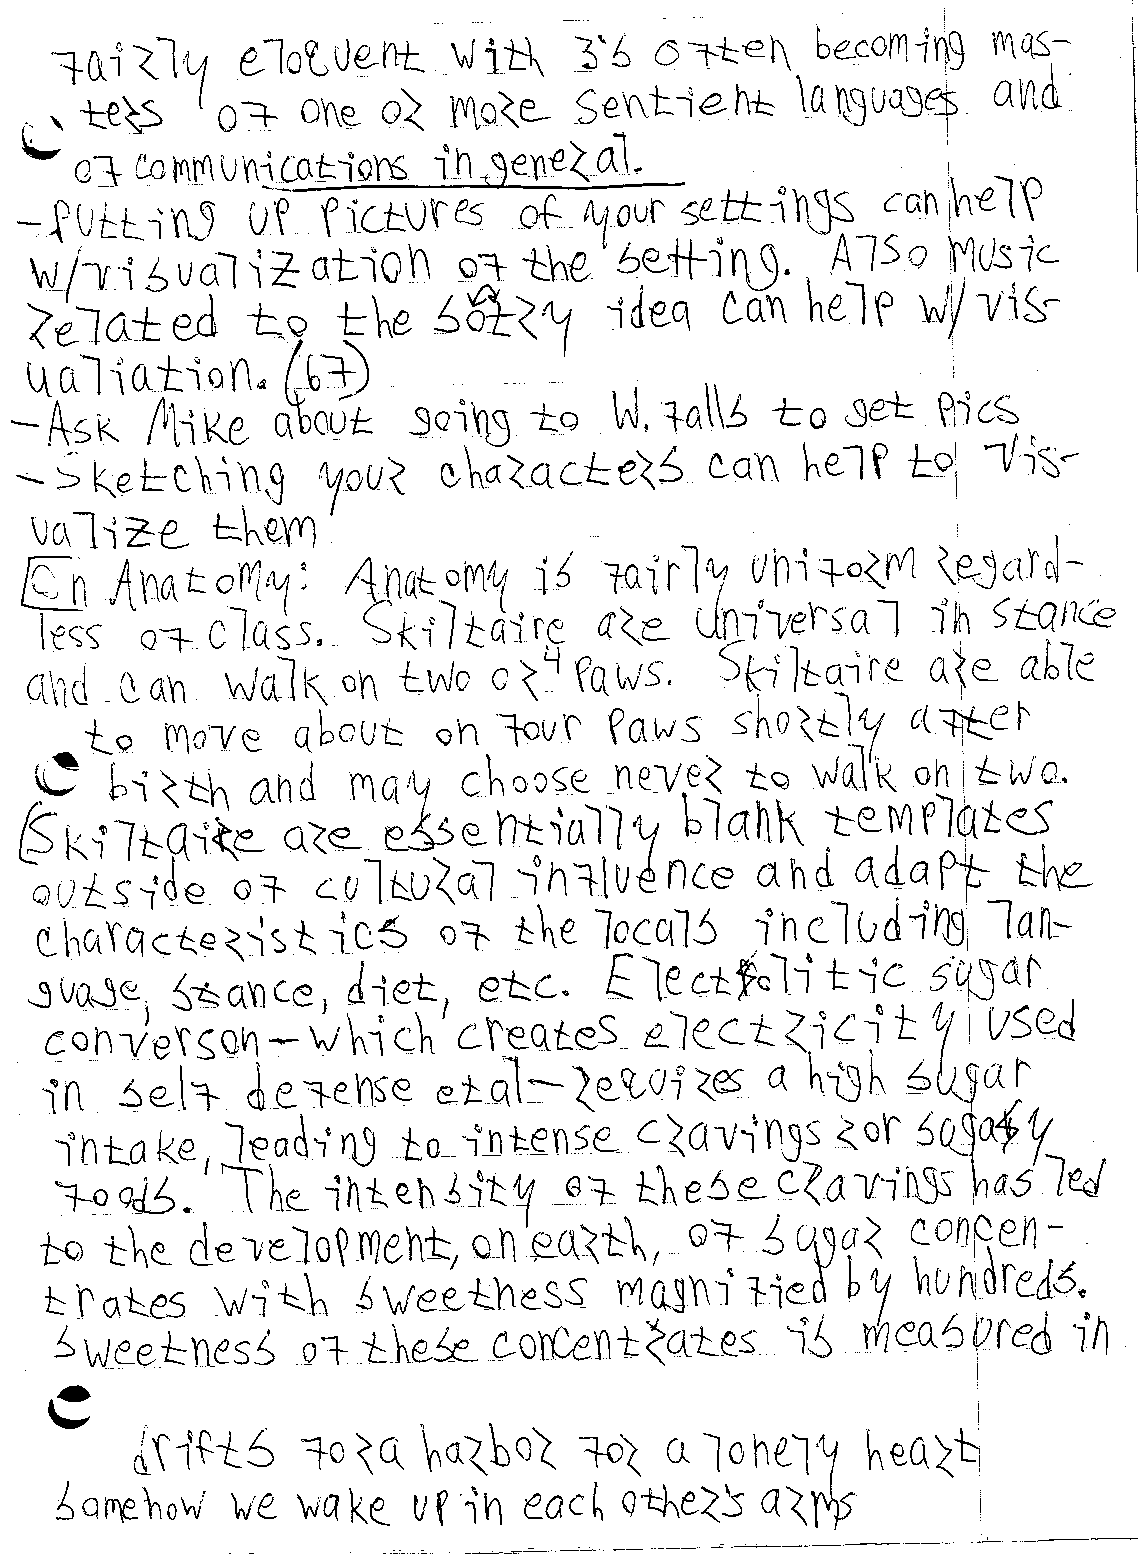 fairly eloquent with 3's often becoming mas-
ters of one or more sentient languages and
of communications in general.
-Putting up pictures of your settings can help
w/visualization of the setting. Also music
related to the sotry idea can help w/ vis-
ualiation. (67)
-Ask Mike about going to W. falls to get pics
-Sketching your characters can help to vis-
ualize them
On Anatomy: Anatomy is fairly uniform regard-
less of class. Skiltaire are universal in stance
and can walk on two or 4 paws. Skiltaire are able
to move about on four paws shortly after
birth and may choose never to walk on two.
(Skiltaire are essentially blank templates
outside of cultural influence and adapt the
characteristics of the locals including lan-
guage, stance, diet, etc. Electrolitic sugar
converson-which creates electricity used
in self defense etal-requires a high sugar
intake, leading to intense cravings ror sugary
foods. The intensity of these cravings has led
to the development, on earth, of sugar concen-
trates with sweetness magnified by hundreds.
Sweetness of these concentrates is measured in
drifts for a harbor for a lonely heart
Somehow we wake up in each other's arms